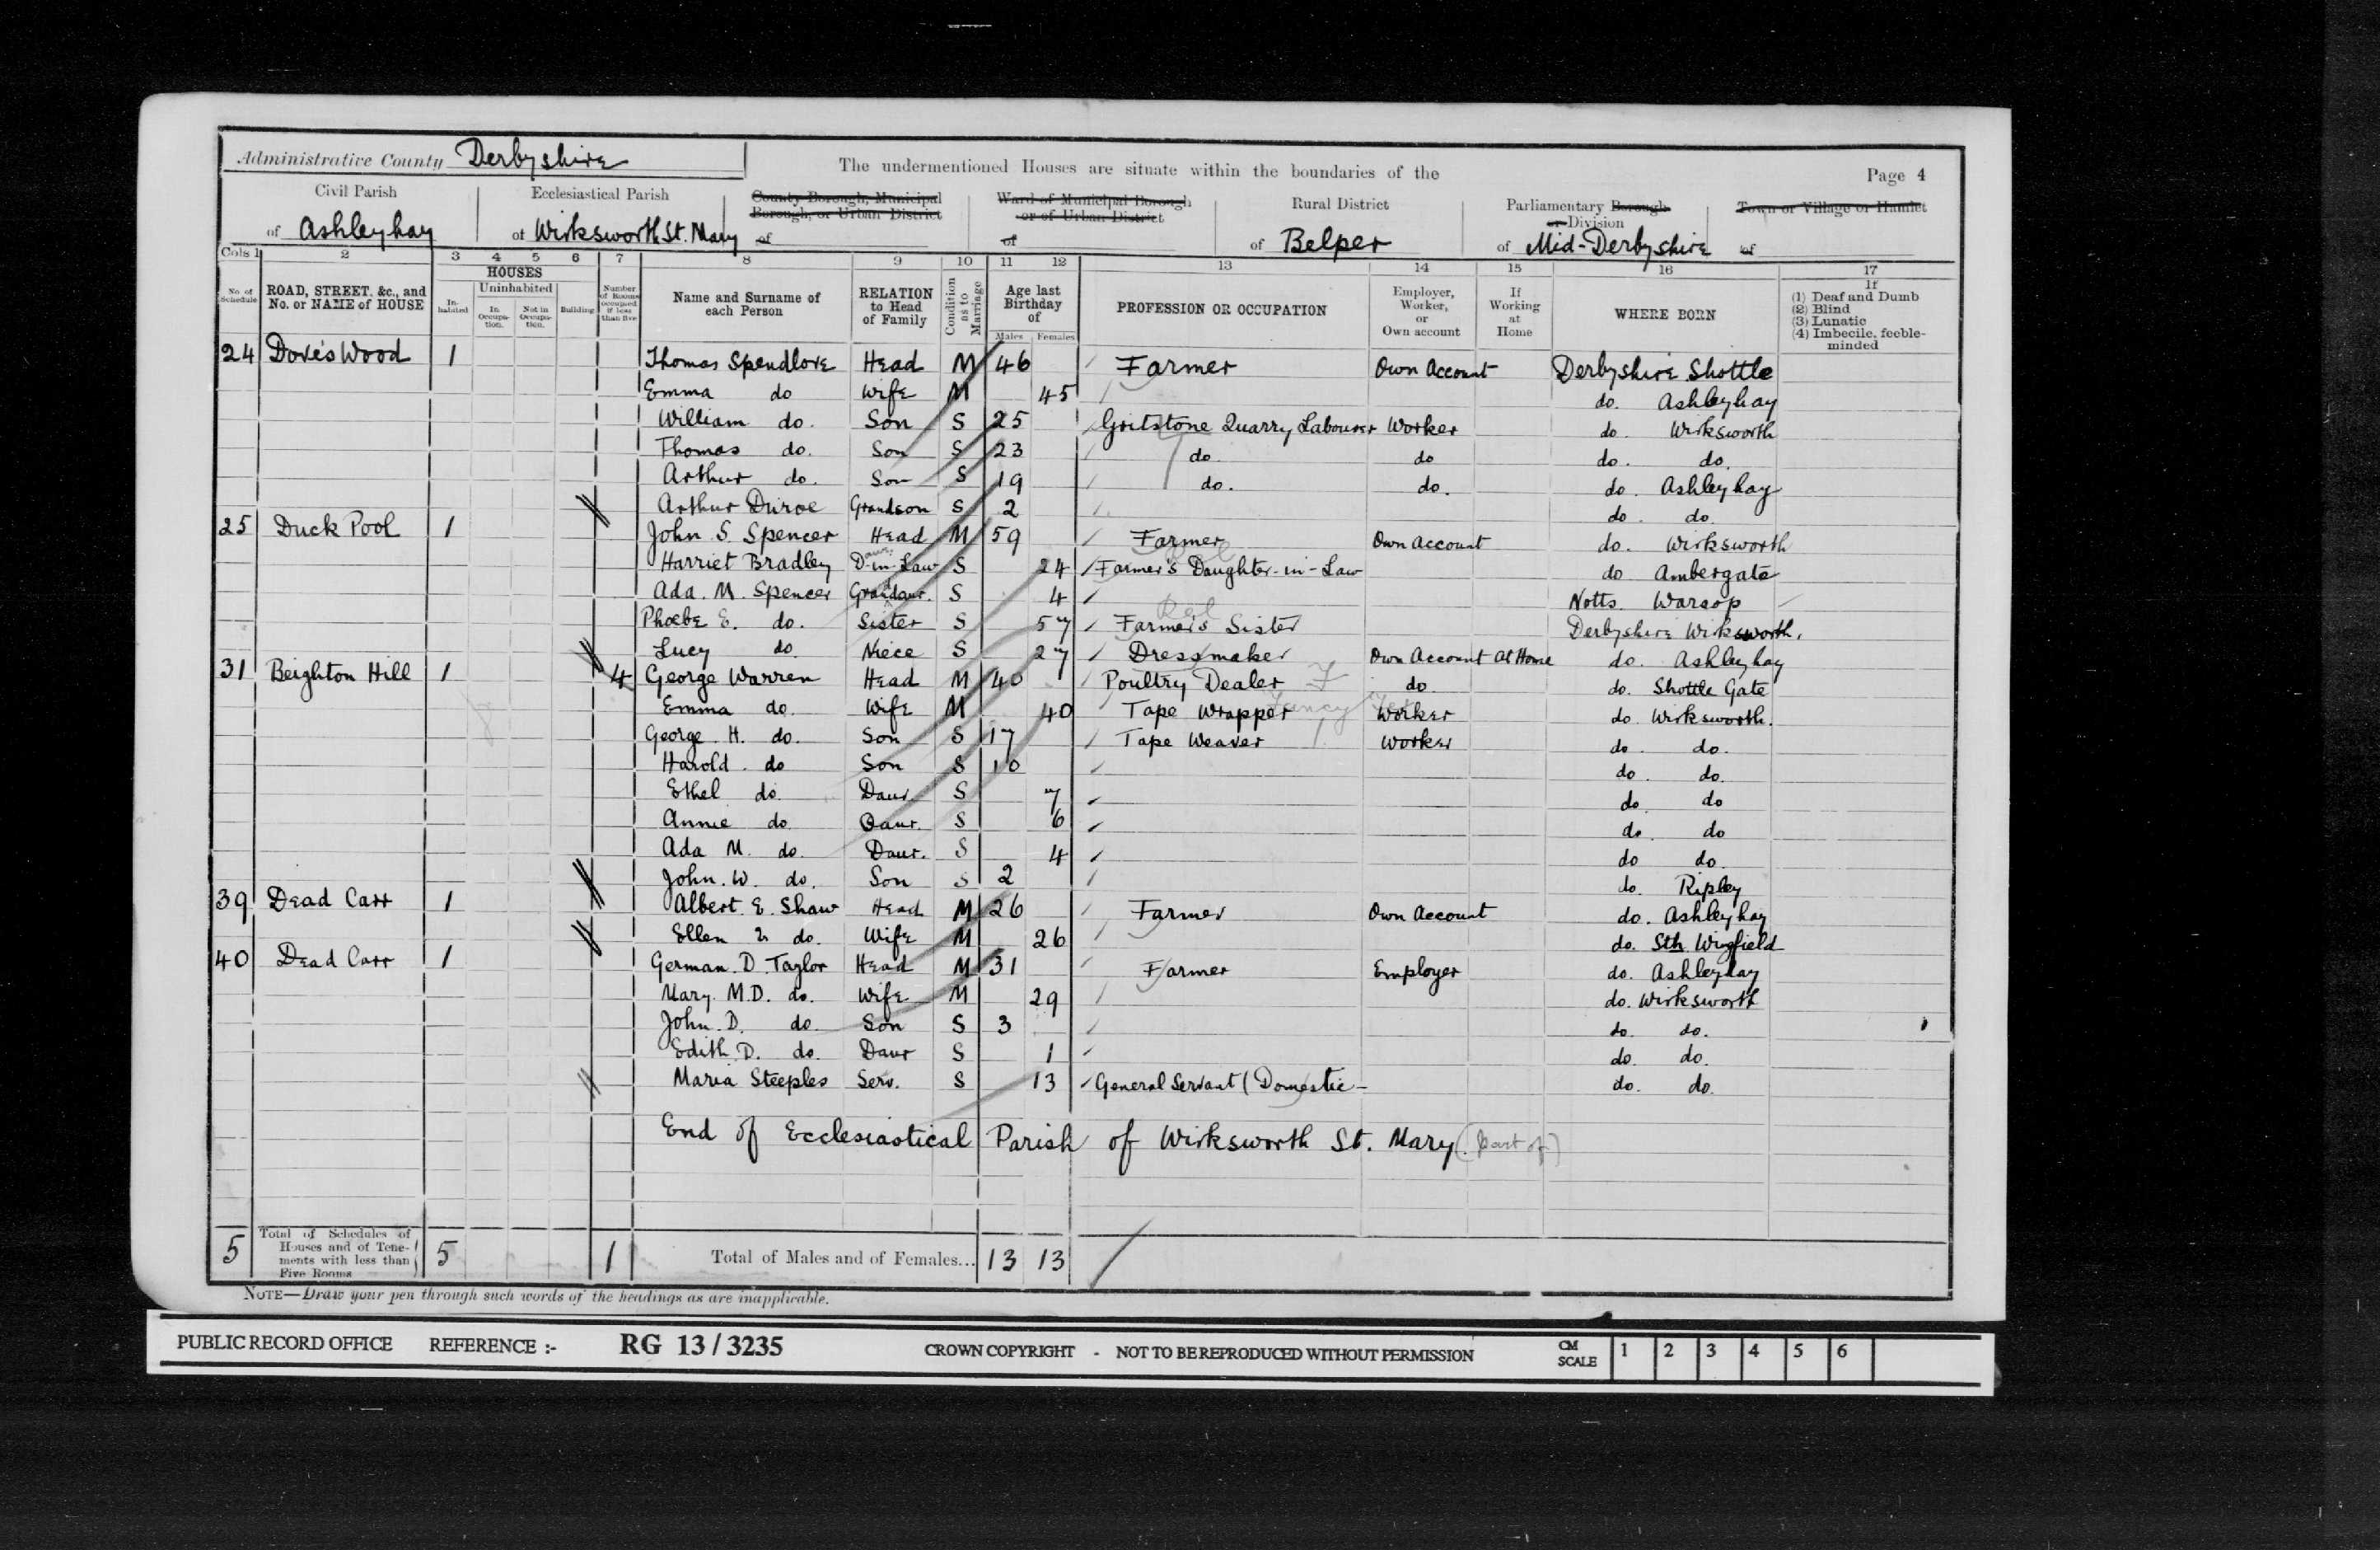 Administrative County Derbyshire
The undermentioned Houses are situate within the boundaries of the
Page 4
Civil Parish
of Ashleyhay
Ecclesiastical Parish
of Wirksworth St. Mary
County Borough, Municipal
Borough, or Urban District
of
Ward of Municipal Borough
or of Urban District
of
Rural District
of Belper
Parliamentary Borough
or Division
of Mid-Derbyshire
Town or Village or Hamlet
of
Cols 1 2 3 4 5 6 7 8 9 10 11 12 13 14 15 16 17
No. of Schedule
ROAD, STREET, &c., and
No. or NAME of HOUSE
HOUSES
In-habited
Uninhabited
In Occupa-tion.
Not in Occupa-tion.
Building
Number of Rooms occupied if less than five
Name and Surname of
each Person
RELATION
to Head
of Family
Condition as to Marriage
Age last
Birthday
of
Males Females
PROFESSION OR OCCUPATION
Employer,
Worker,
or
Own account
If
Working
at
Home
WHERE BORN
If
(1) Deaf and Dumb
(2) Blind
(3) Lunatic
(4) Imbecile, feeble-minded
24 Dove's Wood 1 Thomas Spendlove Head M 46 Farmer Own Account Derbyshire Shottle
Emma do Wife M 45 do. Ashleyhay
William do. Son S 25 Gritstone Quarry Labourer Worker do. Wirksworth
Thomas do. Son S 23 do do do. do.
Arthur do. Son S 19 do. do. do. Ashleyhay
Arthur Grandson S 2 do. do.
25 Duck Pool 1 John S. Spencer Head M 59 Farmer Own Account do. Wirksworth
Harriet Bradley D-in-Law S 24 Farmer's Daughter-in-Law do Ambergate
Ada. M. Spencer Grandaur. S 4 Notts. Warsop
Phœbe E. do. Sister S 57 Farmer's Sister Derbyshire Wirksworth.
Lucy do. Niece S 27 Dressmaker Own Account At Home do. Ashleyhay
31 Beighton Hill 1 4 George Warren Head M 40 Poultry Dealer do do. Shottle Gate
Emma do. Wife M 40 Tape Wrapper Worker do. Wirksworth.
George. H. do. Son S 17 Tape Weaver Worker do. do.
Harold. do Son S 10 do. do.
Ethel do. Daur. S 7 do. do
Annie do. Daur. S 6 do. do
Ada M. do. Daur. S 4 do do.
John. W. do. Son S 2 do. Ripley
39 Dead Carr 1 Albert. E. Shaw Head M 26 Farmer Own Account do. Ashleyhay
Ellen do. Wife M 26 do. Sth Wingfield
40 Dead Carr 1 German. D. Taylor Head M 31 Farmer Employer do. Ashleyhay
Mary. M.D. do. Wife M 29 do. Wirksworth
John. D. do. Son S 3 do. do.
Edith. D. do. Daur S 1 do. do.
Maria Steeples Serv. S 13 General Servant (Domestic- do. do.
End of Ecclesiastical Parish of Wirksworth St. Mary. (part of)
5 Total of Schedules of
Houses and of Tene-
ments with less than
Five Rooms
5 1 Total of Males and of Females... 13 13
NOTE—Draw your pen through such words of the headings as are inapplicable.
PUBLIC RECORD OFFICE REFERENCE :- RG 13 / 3235 CROWN COPYRIGHT - NOT TO BE REPRODUCED WITHOUT PERMISSION CM SCALE 1 2 3 4 5 6